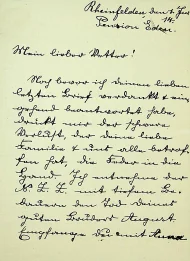 Rheinfelden den 7. Juli
14.
Pension Eden.
Mein lieber Vetter!
Noch bevor ich deinen lieben
letzten Brief verdankt & ein-
gehend beantwortet habe,
drückt mir der schwere
Verlust, der deine liebe
Familie & uns alle betrof-
fen hat, die Feder in die
Hand. Ich entnehme der
N. Z. Z. mit tiefem Be-
dauern den Tod deines
guten Bruders August
Empfange du mit